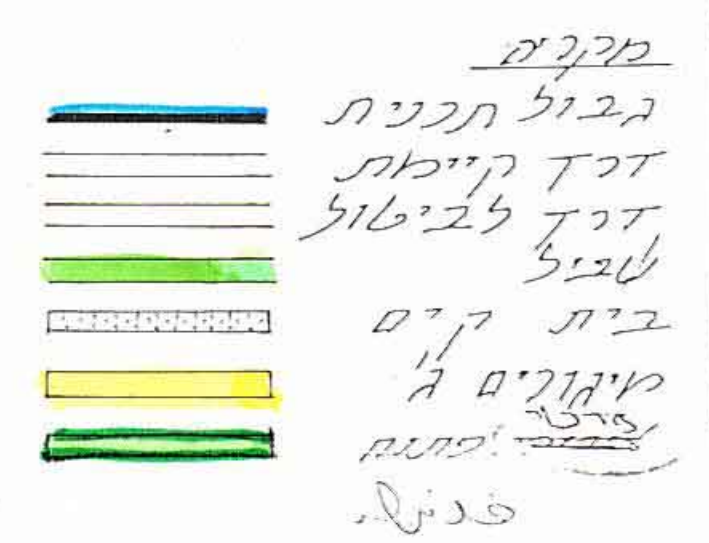 מקריה
גבול תכנית
דרך קיימת
דרך לביטול
שביל
בית קים
מיגורים ג'